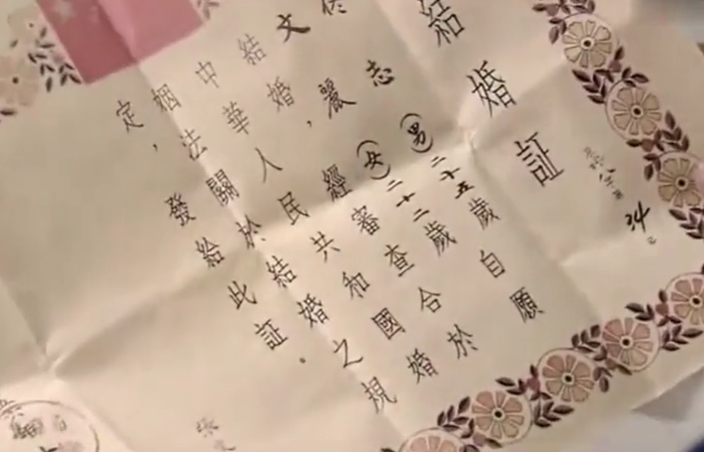 結婚証
志(男)二十五歲自願
文麗(女)二十二歲
結婚，經審查合於
中華人民共和國婚
姻法關於結婚之規
定，發給此証。